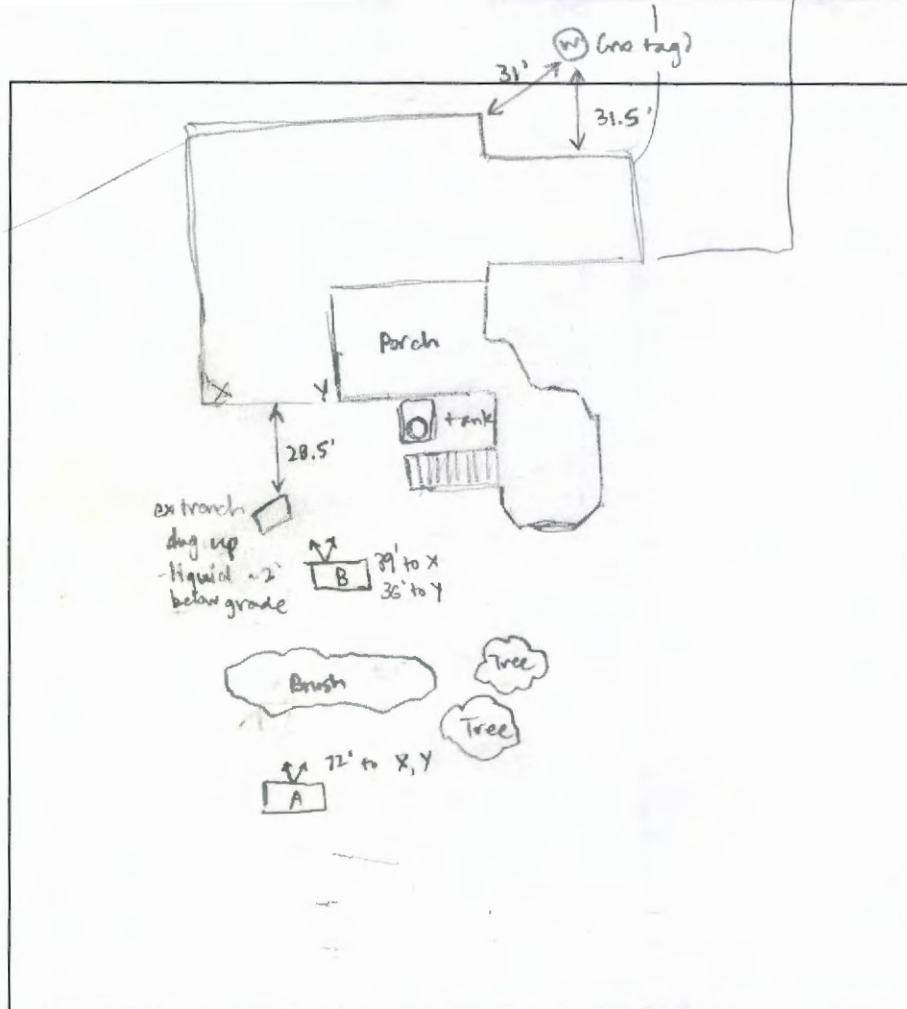 W (no tag)
31'
31.5'
Porch
X
Y
tank
28.5'
ex trench
dug up
-liquid ~2'
below grade
B
39' to X
36' to Y
Brush
Tree
Tree
72' to X, Y
A